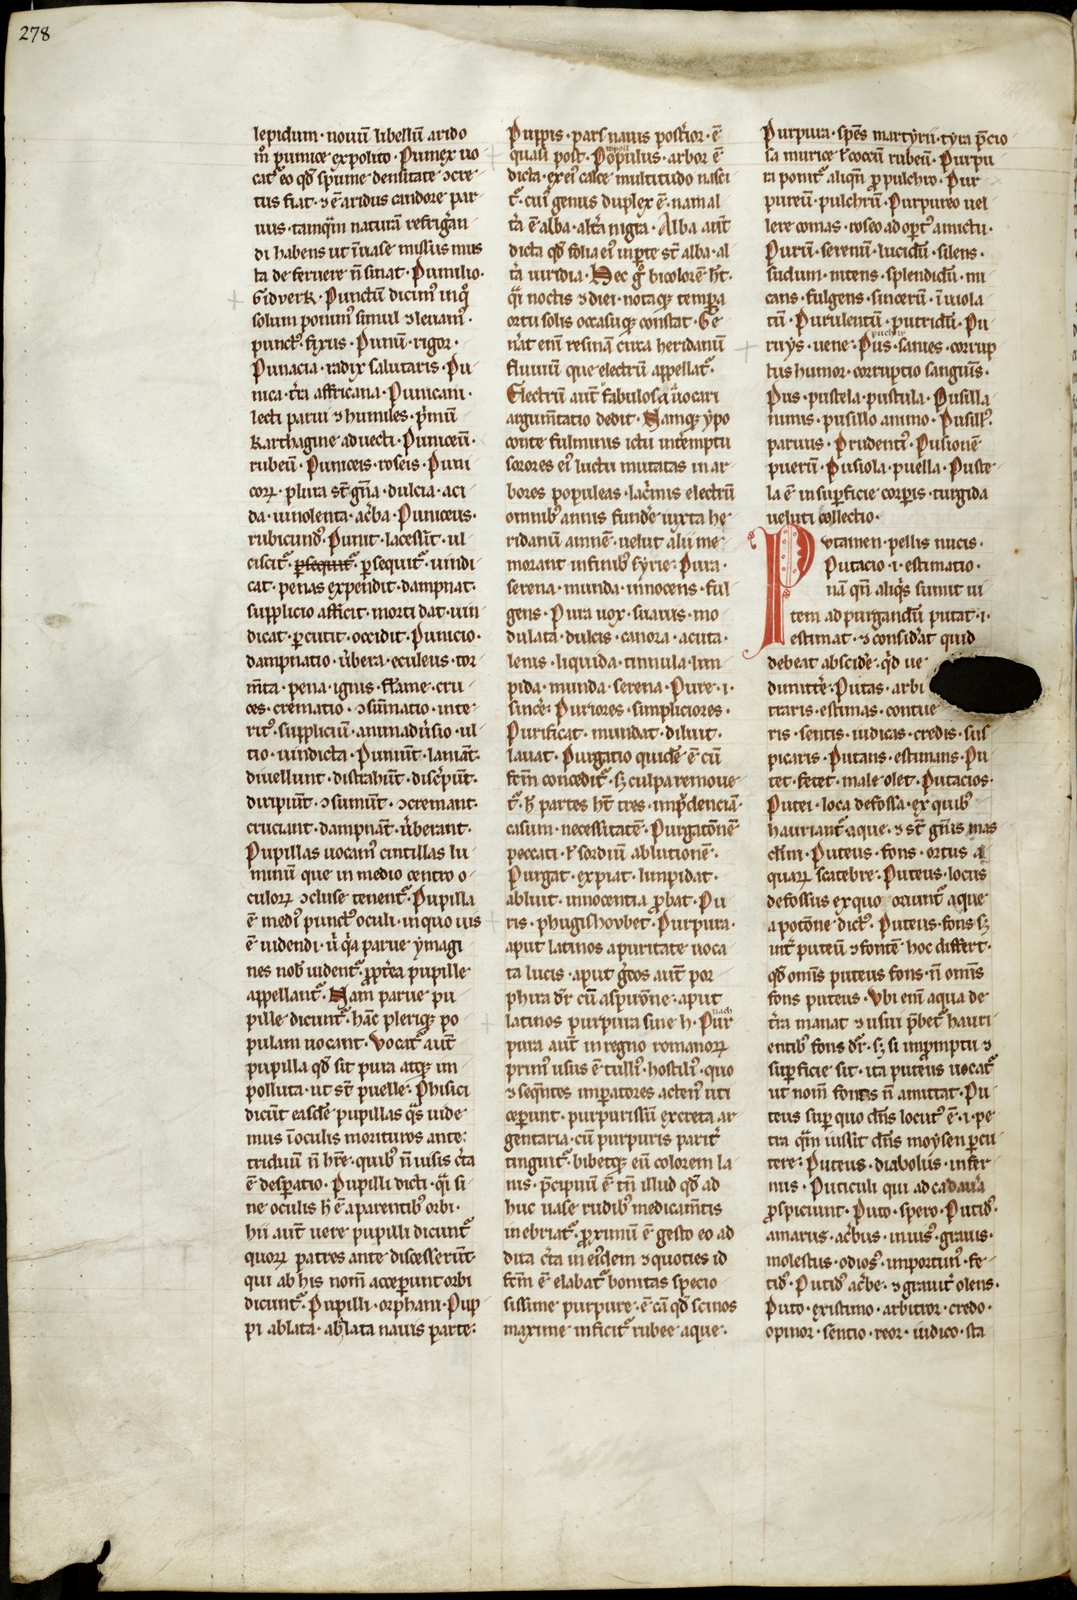 278
lepidum · nouū libellū arido
m̄ pumice expolito · Pumex uo
cat̃ eo qd̄ spume densitate ꝯcre
tus fiat · ⁊ ē aridus candore par
uus · tamq̄m naturā refrigeran
di habens ut ī uase missus mus
ta de feruere n̄ sinat · Pumilio ·
Gidverk · Punctū dicimꝰ inqͦ
solum ponimꝰ simul ⁊ leuamꝰ ·
punctꝰ · fixus · Punū · rigor ·
Punacia · radix salutaris · Pu
nica · t̃ra affricana · Punicani ·
lecti parui ⁊ humiles · p̃mū
Karthagine aduecti · Puniceū ·
rubeū · Puniceis · roseis · Puni
coꝝ · plura st̄ gn̄a · dulcia · aci
da · uinolenta · ac̃ba · Puniceus ·
rubicundꝰ · Punit · lacessit · ul
ciscit̃ · ꝑsequit̃ · ꝑsequit̃ · uindi
cat · penas expendit · dampnat ·
supplicio afficit · morti dat · uin
dicat · ꝑcutit · occidit · Punicio ·
dampnatio · ũbera · eculeus · tor
m̄ta · pena · ignis · flāme · cru
ces · crematio · ꝯsūmatio · inte
ritꝰ · suppliciū · animadũsio · ul
tio · uindicta · Puniūt · laniāt ·
diuellunt · distrahūt · disc̃piūt ·
diripiūt · ꝯsumūt · ꝯcremant ·
cruciant · dampnāt · ũberant ·
Pupillas uocamꝰ cintillas lu
minū que in medio centro o
culoꝝ ꝯcluse tenent̃ · Pupilla
ē mediꝰ punctꝰ oculi · in quo uis
ē uidendi · ũ q̃a parue ymagi
nes nob̄ uident̃ · ꝓpt̃ea pupille
appellant̃ · Nam parue pu
pille dicunt̃ · hāc pleriqꝫ po
pulam uocant · Vocat̃ aūt
pupilla qd̄ sit pura atqꝫ im
polluta · ut st̄ puelle · Phisici
dicūt easdē pupillas q̄s uide
mus ī oculis morituros ante
triduū n̄ hr̄e · quibꝰ n̄ uisis c̃ta
ē desꝑatio · Pupilli dicti · q̄i si
ne oculis h̄ ē aparentibꝰ orbi ·
hii aūt uere pupilli dicunt̃
quoꝝ patres ante discesserūt
qui ab his nom̄ acceꝑunt orbi
dicunt̃ · Pupilli · orphani · Pup
pi ablata · ablata nauis parte ·
Puppis · pars nauis post̃ior · ē
quasi post · Populus · arbor ē
dicta · ex eiꝰ calce multitudo nasci
t̃ · cuiꝰ genus duplex ē · nam al
t̃a ē alba · alt̃a nigra · Alba aūt
dicta qd̄ folia eiꝰ in ꝑte st̄ alba · al
t̃a uiridia · Hec gͦ bicolorē ht̄ ·
q̄i noctis ⁊ diei · notaqꝫ temꝑa
ortu solis occasuqꝫ constat · Ge
n̄at enī resinā circa heridanū
fluuiū que electrū appellat̃ ·
Electrū aūt fabulosa uocari
argum̄tatio dedit · Namqꝫ ypo
conte fulminis ictu int̃emptu
sorores eiꝰ luctu mutatas in ar
bores populeas · lac̃imis electrū
omnibꝰ annis fund̃e iuxta he
ridanū amnē · uelut alii me
morant in finibꝰ syrie · Pura ·
serena · munda · innocens · ful
gens · Pura uox · suauis · mo
dulata · dulcis · canora · acuta ·
lenis · liquida · tinnula · lim
pida · munda · serena · Pure · i ·
sinc̃e · Puriores · simpliciores ·
Purificat · mundat · diluit ·
lauat · Purgatio quidē ē cū
fc̄m concedit̃ · sꝫ culpa remoue
t̃ · h̄ partes ht̄ tres · imp̃denciā ·
casum · necessitatē · Purgatōnē
peccati · ł sordiū ablutionē ·
Purgat · expiat · limpidat ·
abluit · innocentia ꝓbat · Pu
ris · phugishovbet · Purpura ·
aput latinos a puritate uoca
ta lucis · aput g̃cos aūt por
phira dr̄ cū aspirōne · aput
latinos purpura sine h · Pur
pura aūt in regno romanoꝝ
primꝰ usus ē tulliꝰ · hostiliꝰ · quo
⁊ seq̄ntes imꝑatores actenꝰ uti
ceꝑunt · purpurissū excreta ar
gentaria · cū purpuris parit̃
tinguit̃ · bibetqꝫ eū colorem la
nis · p̃cipuū ē tn̄ illud qd̄ ad
huc uase rudibꝰ medicam̄tis
inebriat̃ · ꝓximū ē gesto eo ad
dita c̃ta in eiꝰdem ⁊ quoties id
fc̄m ē elabat̃ bonitas specio
sissime purpure · ē cā qd̄ scinos
maxime inficit̃ rubee aque ·
Purpura · spēs martyrii · tyra p̃cio
sa murice ł coccū rubeū · Purpu
ra ponit̃ aliqn̄ ꝓ pulchro · Pur
pureū · pulchrū · Purpureo uel
lere comas · roseo adoꝑtꝰ amictu ·
Purū · serenū · lucidū · silens ·
sudum · nitens · splendidū · mi
cans · fulgens · sincerū · ī uiola
tū · Purulentū · putridū · Pu
ruys · uene · Pus · sanies · corrup
tus humor · corruptio sanguīs ·
Pus · pustela · pustula · Pusilla
nimis · pusillo animo · Pusillꝰ ·
paruus · Prudentiꝰ · Pusionē
puerū · Pusiola · puella · Puste
la ē in suꝑficie corꝑis · turgida
ueluti collectio ·
Putamen · pellis nucis ·
Putacio · i · estimatio ·
nā qn̄ aliq̄s sumit ui
tem ad purgandū putat · i ·
estimat · ⁊ consid̃at quid
debeat abscid̃e · q̄d ue
dimitt̃e · Putas · arbi
traris · estimas · contue
ris · sentis · iudicas · credis · sus
picaris · Putans · estimans · Pu
tet · fetet · male olet · Putacios ·
Putei · loca defossa · ex quibꝰ
hauriant̃ aque · ⁊ st̄ gn̄is mas
clīni · Puteus · fons · ortus a
quaꝝ scatebre · Puteus · locus
defossus ex quo oriunt̃ aque
a potōne dictꝰ · Puteus · fons · sꝫ
int̃ puteū ⁊ fontē hoc differt ·
qd̄ omīs puteus fons · n̄ omīs
fons puteus · Vbi enī aqua de
t̃ra manat ⁊ usui p̃bet̃ hauri
entibꝰ fons dr̄ · sꝫ si inpromptu ⁊
suꝑficie sit · ita puteus uocat̃
ut nom̄ fontis n̄ amittat · Pu
teus suꝑ quo dn̄s locutꝰ ē · i · pe
tra q̄m iussit dn̄s moysen ꝑcu
tere · Puteus · diabolus · infer
nus · Puticuli qui ad cadaũa
ꝓspiciunt · Puto · spero · Putidꝰ ·
amarus · ac̃bus · inuisꝰ · grauis ·
molestus · odiosꝰ · importunꝰ · fe
tidꝰ · Putidꝰ ac̃be · ⁊ grauit̃ olens ·
Puto · existimo · arbitror · credo ·
opinor · sentio · reor · iudico · sta